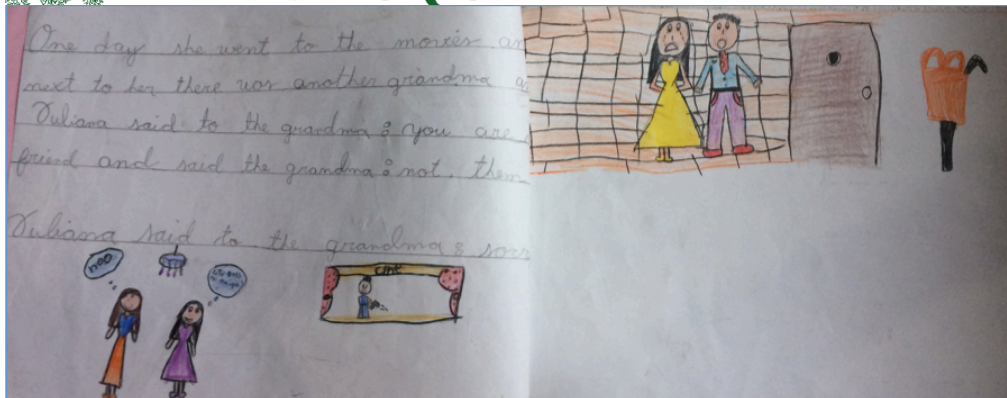 One day she went to the movies an
next to her there was another grandma a
Yuliana said to the grandma : you are
friend and said the grandma : not. them
Yuliana said to the grandma : sorr
noo
cine